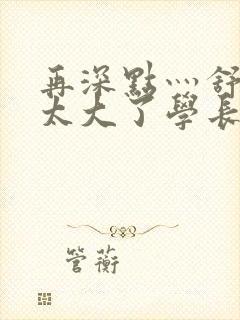 再深點灬舒
太大了學長
管蘅